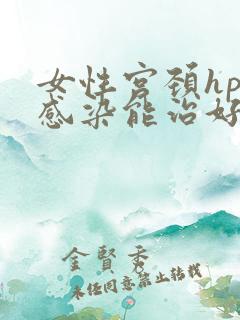 女性宫颈hp
感染能治好
金贤秀
未经同意禁止转载